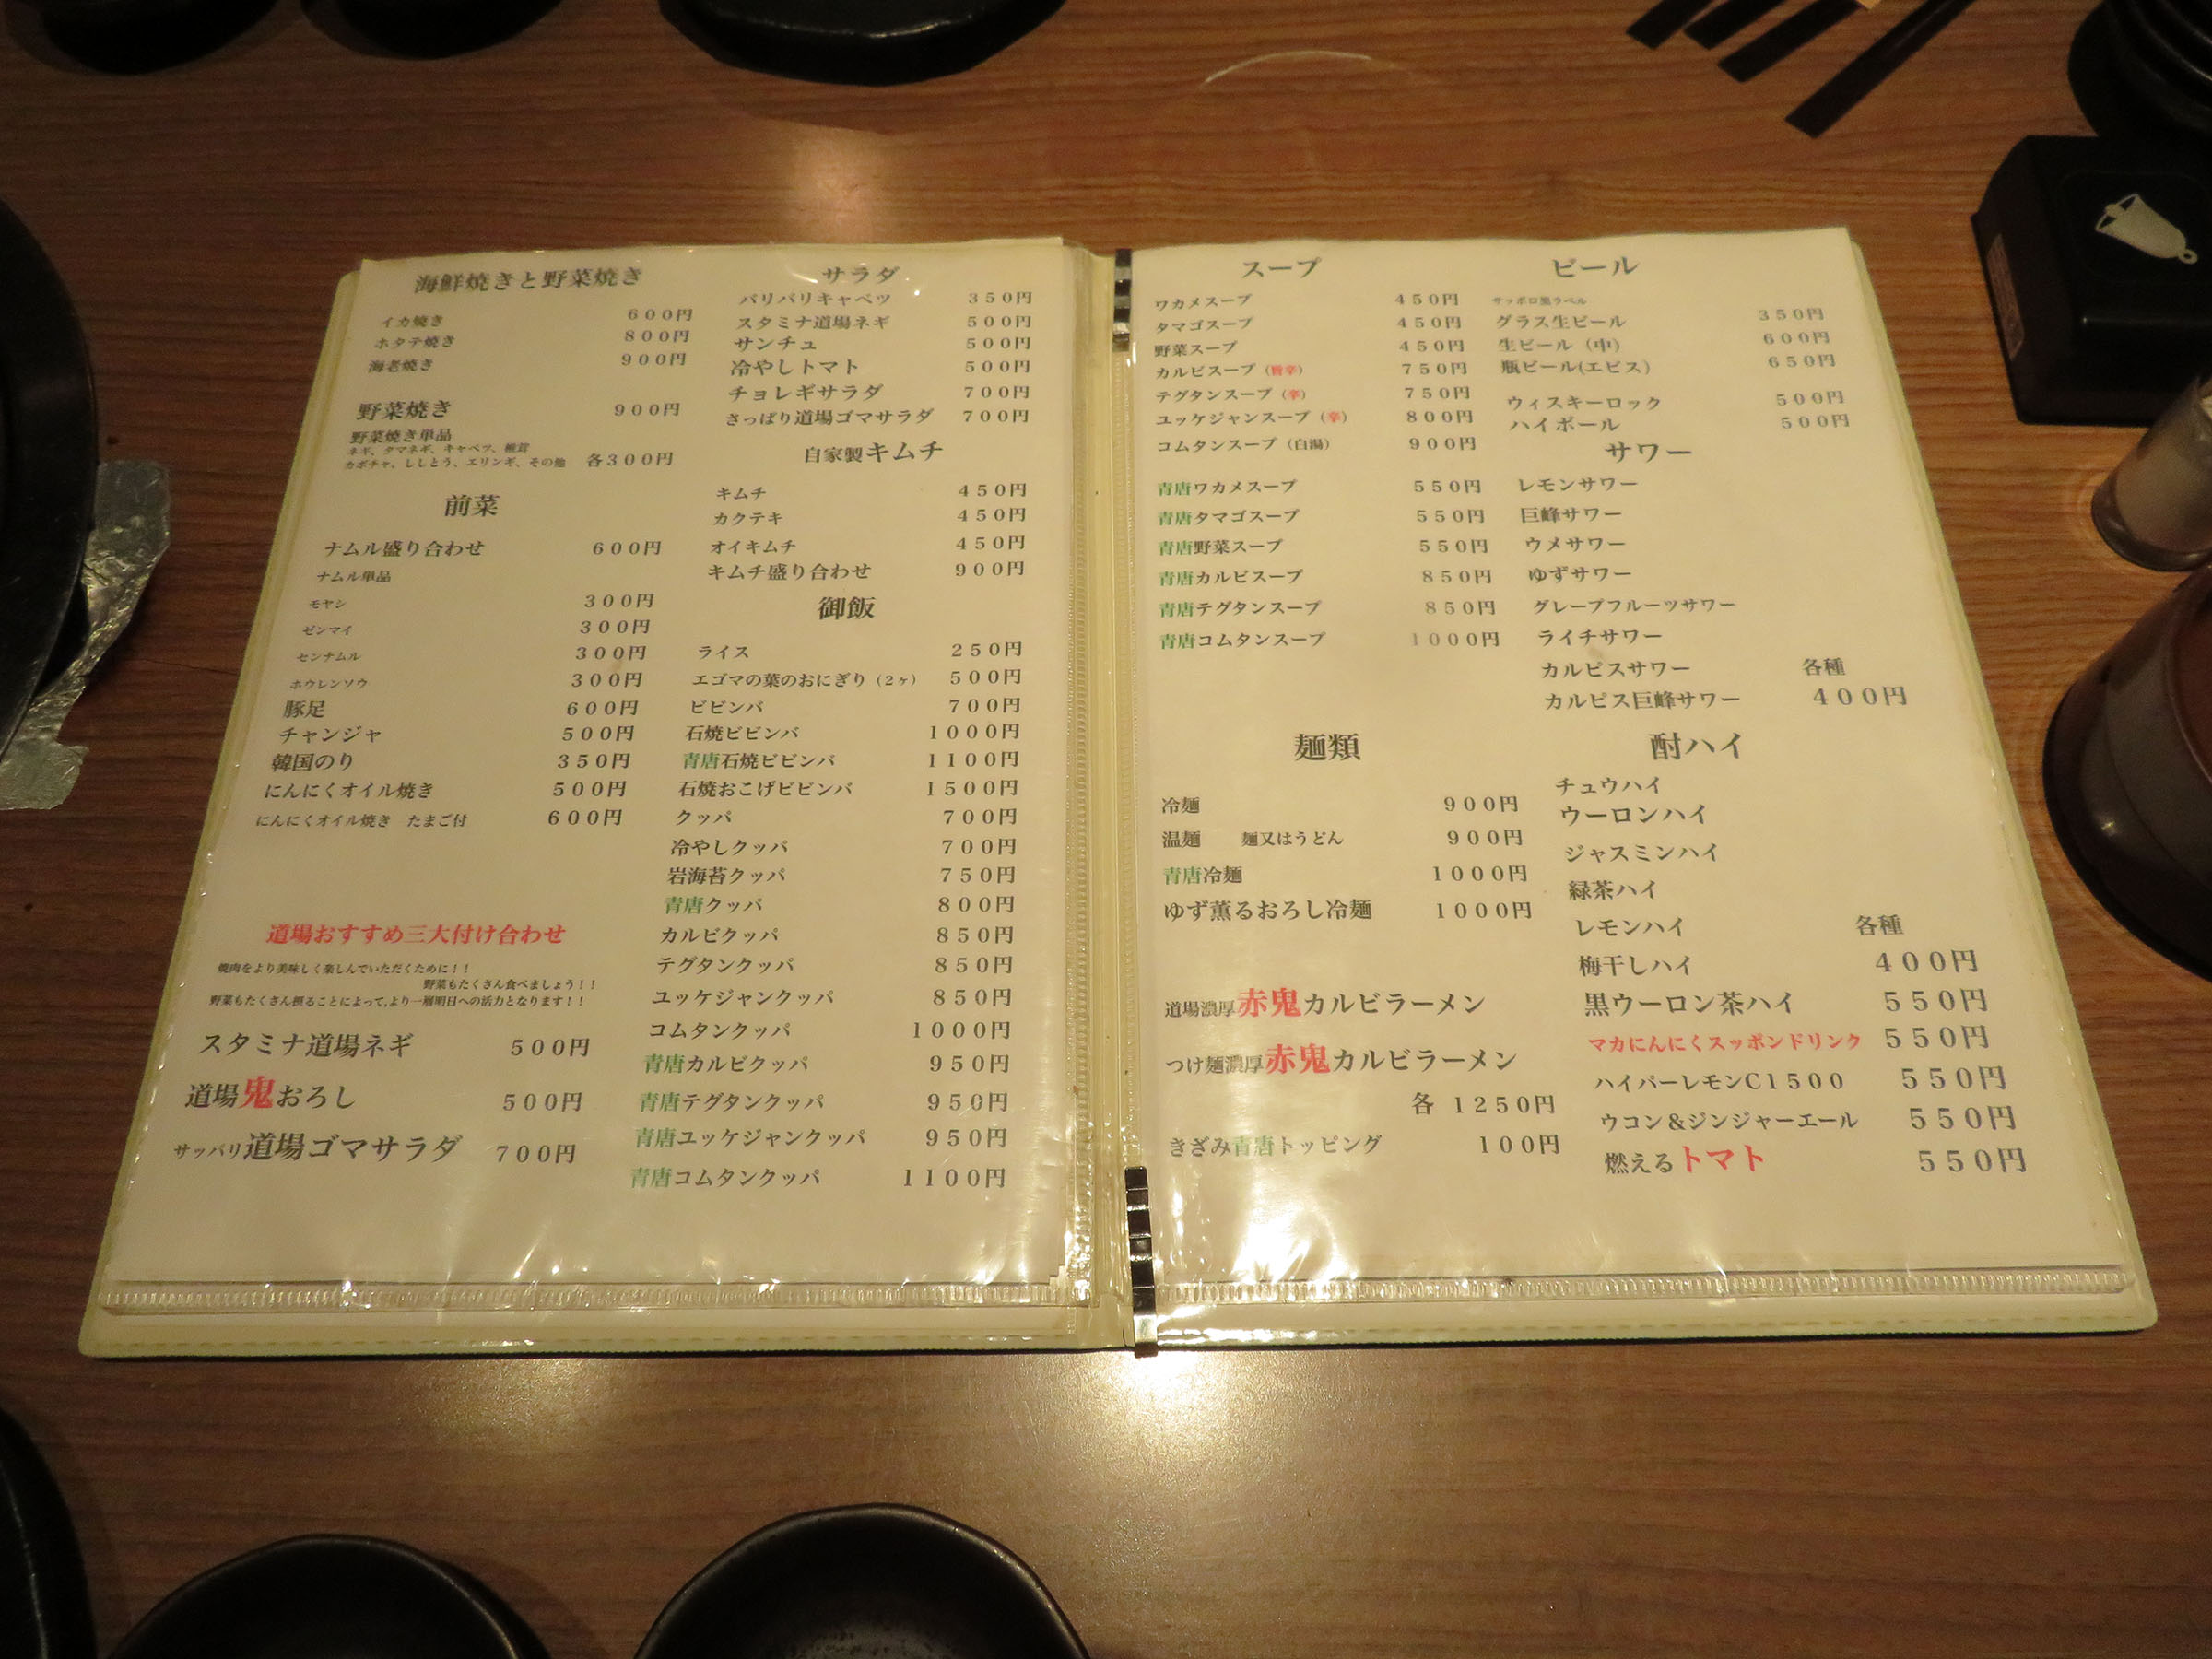 海鮮焼きと野菜焼き
イカ焼き 600円
ホタテ焼き 800円
海老焼き 900円
野菜焼き 900円
野菜焼き単品
ネギ、タマネギ、キャベツ、椎茸
カボチャ、ししとう、エリンギ、その他 各300円
前菜
ナムル盛り合わせ 600円
ナムル単品
モヤシ 300円
ゼンマイ 300円
センナムル 300円
ホウレンソウ 300円
豚足 600円
チャンジャ 500円
韓国のり 350円
にんにくオイル焼き 500円
にんにくオイル焼き たまご付 600円
道場おすすめ三大付け合わせ
焼肉をより美味しく楽しんでいただくために！！
野菜もたくさん食べましょう！！
野菜もたくさん摂ることによって、より一層明日への活力となります！！
スタミナ道場ネギ 500円
道場鬼おろし 500円
サッパリ道場ゴマサラダ 700円
サラダ
パリパリキャベツ 350円
スタミナ道場ネギ 500円
サンチュ 500円
冷やしトマト 500円
チョレギサラダ 700円
さっぱり道場ゴマサラダ 700円
自家製キムチ
キムチ 450円
カクテキ 450円
オイキムチ 450円
キムチ盛り合わせ 900円
御飯
ライス 250円
エゴマの葉のおにぎり（2ヶ） 500円
ビビンバ 700円
石焼ビビンバ 1000円
青唐石焼ビビンバ 1100円
石焼おこげビビンバ 1500円
クッパ 700円
冷やしクッパ 700円
岩海苔クッパ 750円
青唐クッパ 800円
カルビクッパ 850円
テグタンクッパ 850円
ユッケジャンクッパ 850円
コムタンクッパ 1000円
青唐カルビクッパ 950円
青唐テグタンクッパ 950円
青唐ユッケジャンクッパ 950円
青唐コムタンクッパ 1100円
スープ
ワカメスープ 450円
タマゴスープ 450円
野菜スープ 450円
カルビスープ（旨辛） 750円
テグタンスープ（辛） 750円
ユッケジャンスープ（辛） 800円
コムタンスープ（白湯） 900円
青唐ワカメスープ 550円
青唐タマゴスープ 550円
青唐野菜スープ 550円
青唐カルビスープ 850円
青唐テグタンスープ 850円
青唐コムタンスープ 1000円
麺類
冷麺 900円
温麺 麺又はうどん 900円
青唐冷麺 1000円
ゆず薫るおろし冷麺 1000円
道場濃厚赤鬼カルビラーメン
つけ麺濃厚赤鬼カルビラーメン
各 1250円
きざみ青唐トッピング 100円
ビール
サッポロ黒ラベル
グラス生ビール 350円
生ビール（中） 600円
瓶ビール(エビス) 650円
ウィスキーロック 500円
ハイボール 500円
サワー
レモンサワー
巨峰サワー
ウメサワー
ゆずサワー
グレープフルーツサワー
ライチサワー
カルピスサワー 各種
カルピス巨峰サワー 400円
酎ハイ
チュウハイ
ウーロンハイ
ジャスミンハイ
緑茶ハイ
レモンハイ 各種
梅干しハイ 400円
黒ウーロン茶ハイ 550円
マカにんにくスッポンドリンク 550円
ハイパーレモンC1500 550円
ウコン＆ジンジャーエール 550円
燃えるトマト 550円